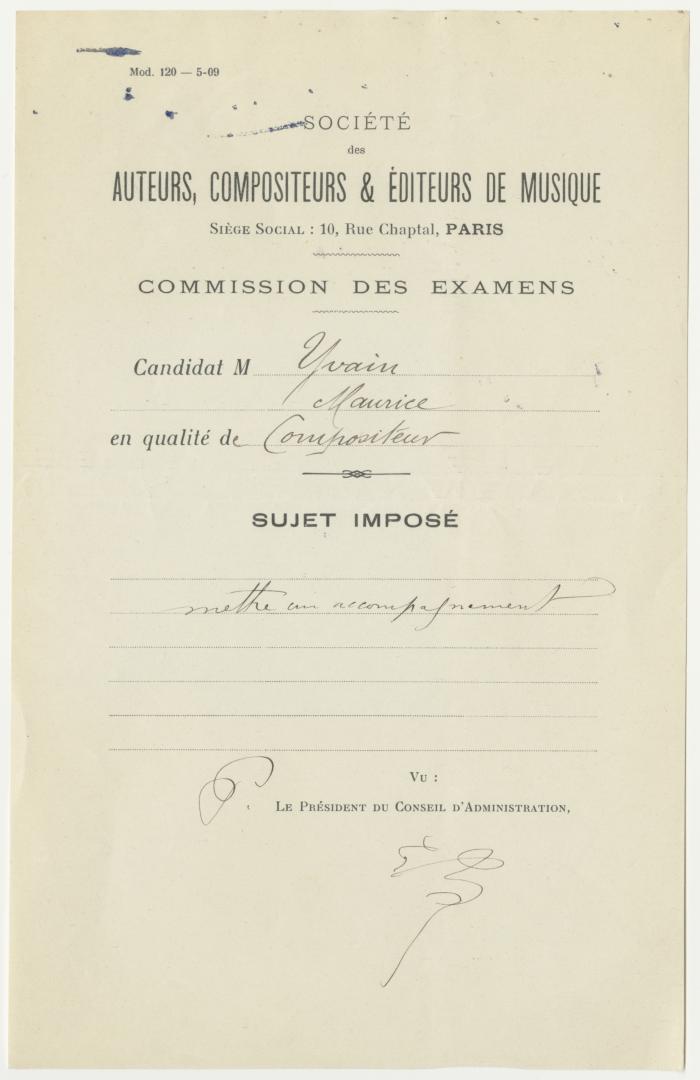 Mod. 120 — 5-09
SOCIÉTÉ
des
AUTEURS, COMPOSITEURS & ÉDITEURS DE MUSIQUE
SIÈGE SOCIAL : 10, Rue Chaptal, PARIS
COMMISSION DES EXAMENS
Candidat M Yvain
Maurice
en qualité de Compositeur
SUJET IMPOSÉ
mettre un accompagnement
VU :
P. LE PRÉSIDENT DU CONSEIL D'ADMINISTRATION,